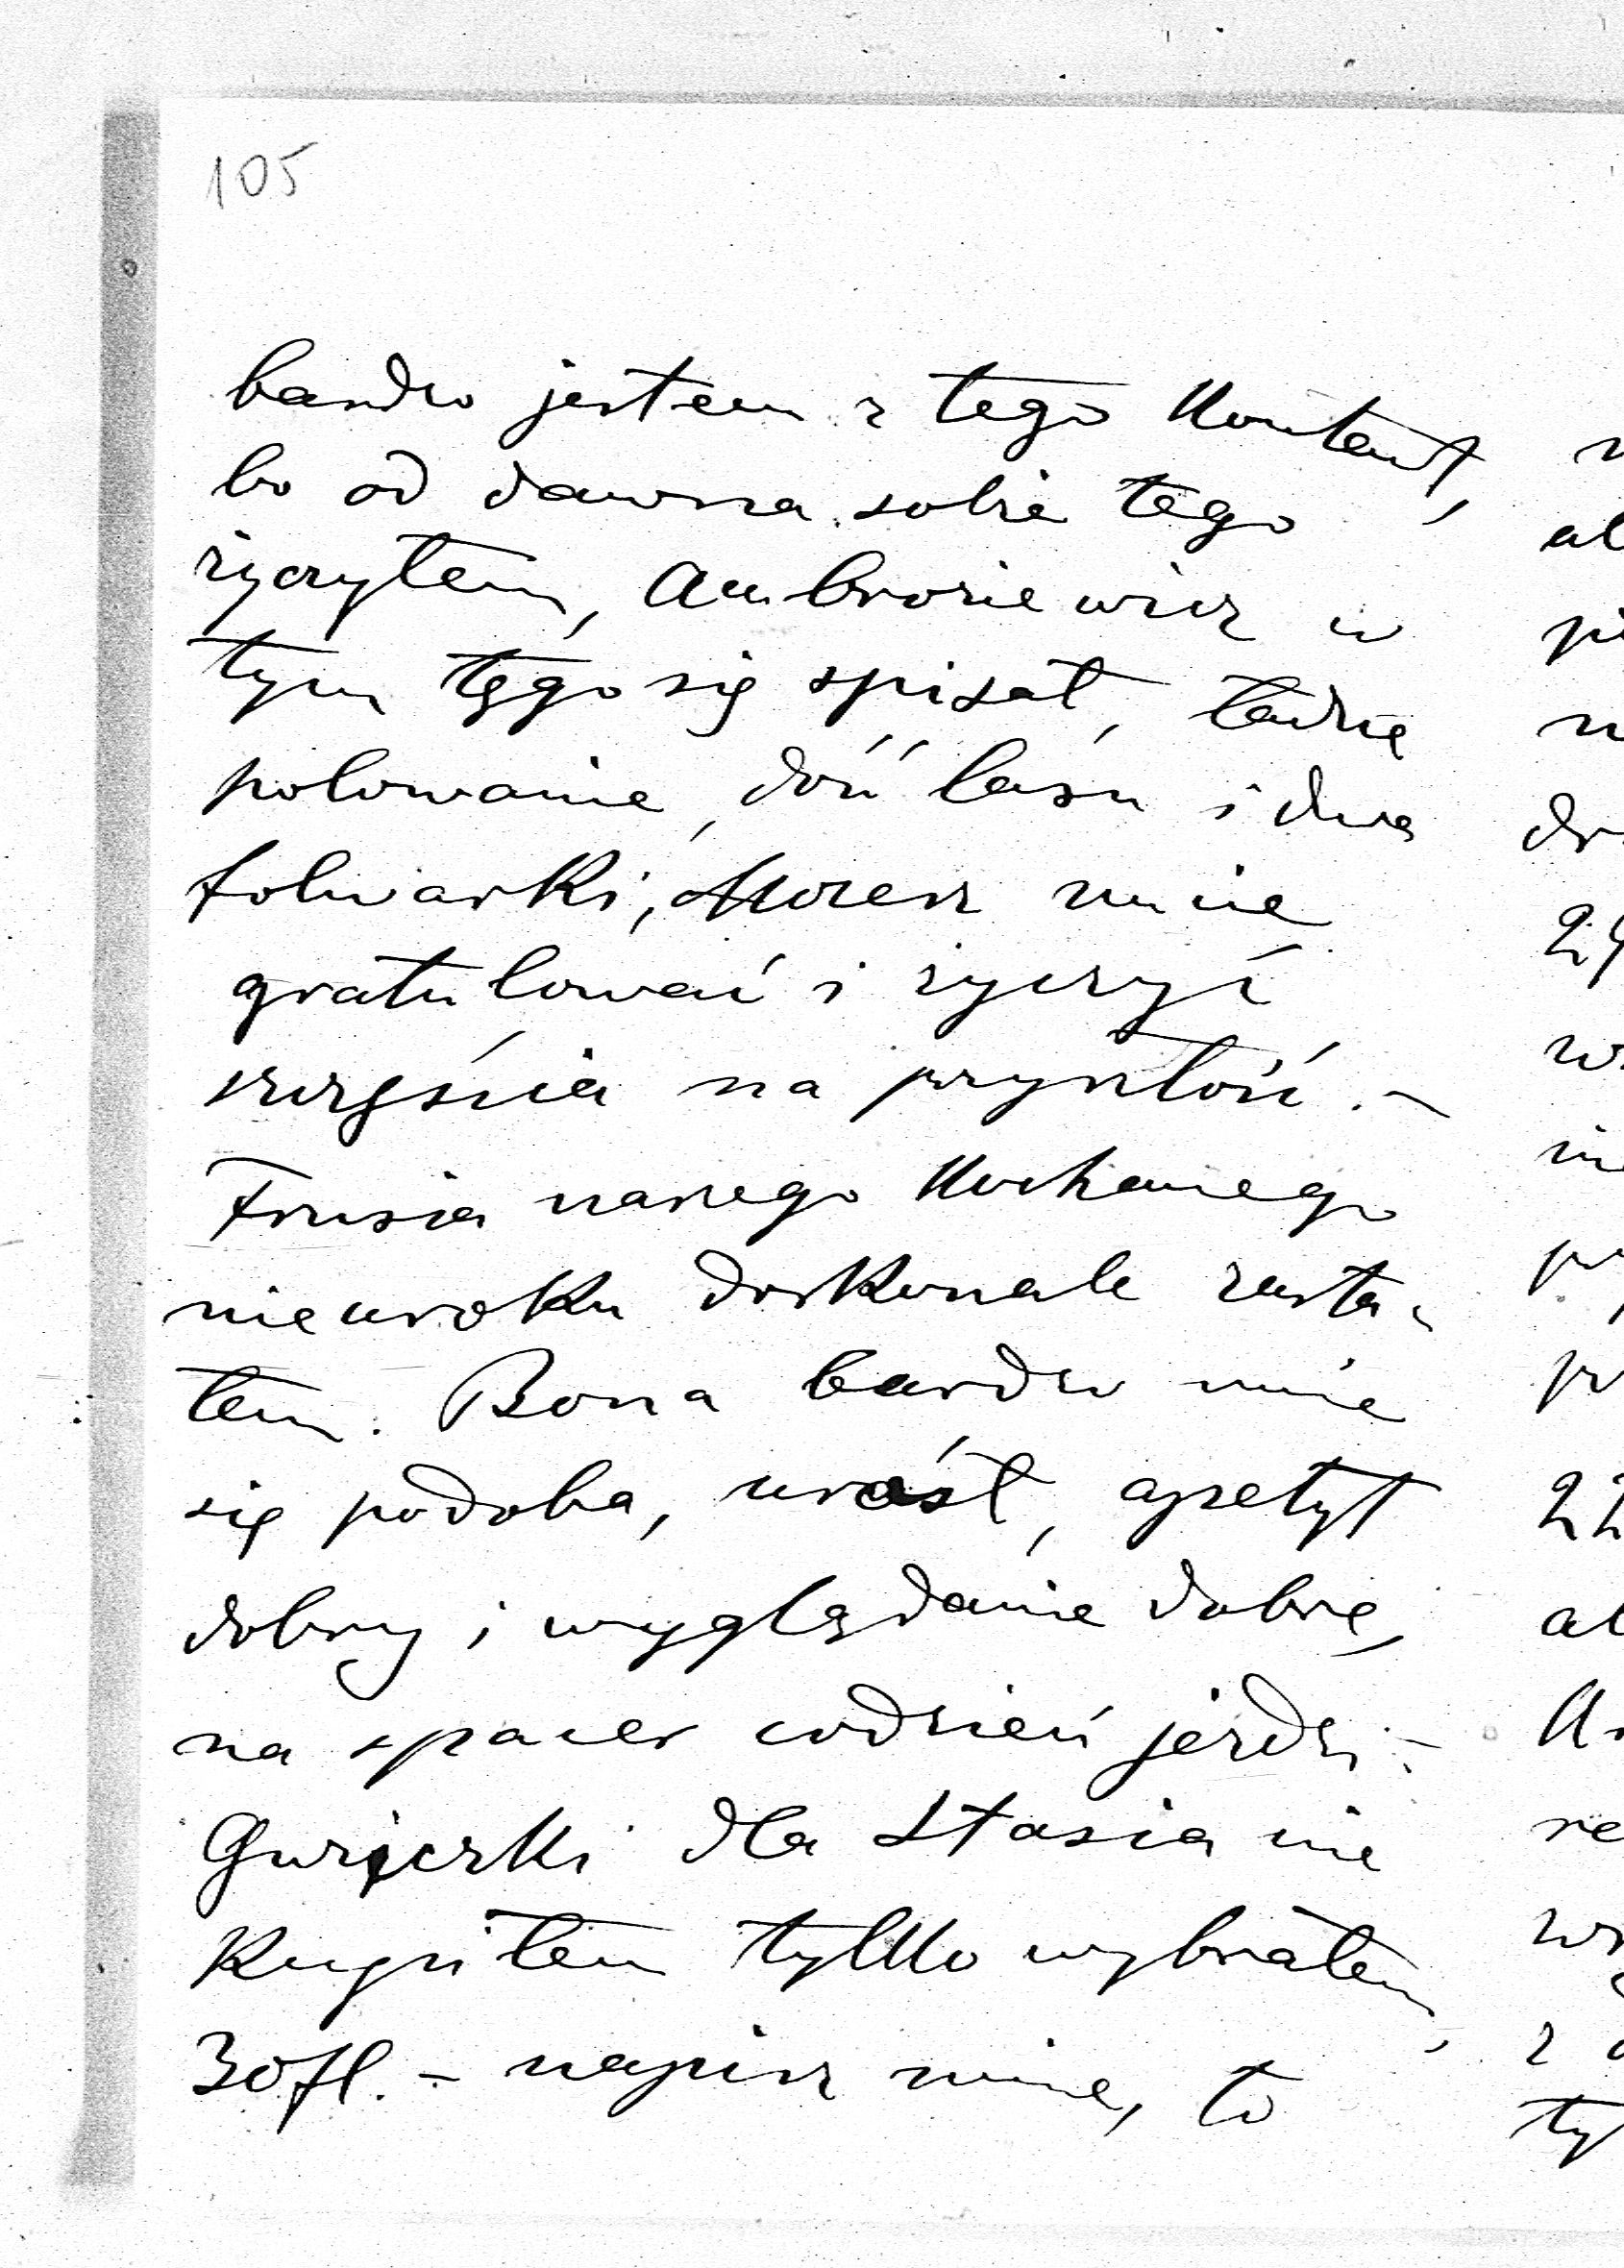 105
bardzo jestem z tego kontent,
bo od dawna sobie tego
życzyłem, Ambroziewicz w
tym tęgo się spisał, ładne
polowanie, dość lasu i dwa
folwarki, Możesz mnie
gratulować i życzyć
szczęścia na przyszłość. –
Frusia naszego kochanego
nieuroku doskonale zasta-
łem. Bona bardzo mnie
się podoba, urósł, apetyt
dobry i wyglądanie dobre,
na spacer codzień jeździ. –
Guziczki dla Stasia nie
kupiłem tylko wybrałem,
30 fl. – napisz mnie, to